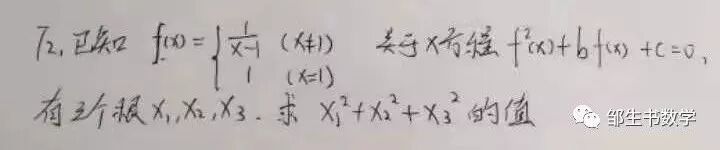 72. 已知 f(x)={ 1/(x-1) (x≠1) 关于x方程 f²(x)+bf(x)+c=0,
1 (x=1)
有三个根 x₁,x₂,x₃. 求 x₁²+x₂²+x₃² 的值
邹生书数学